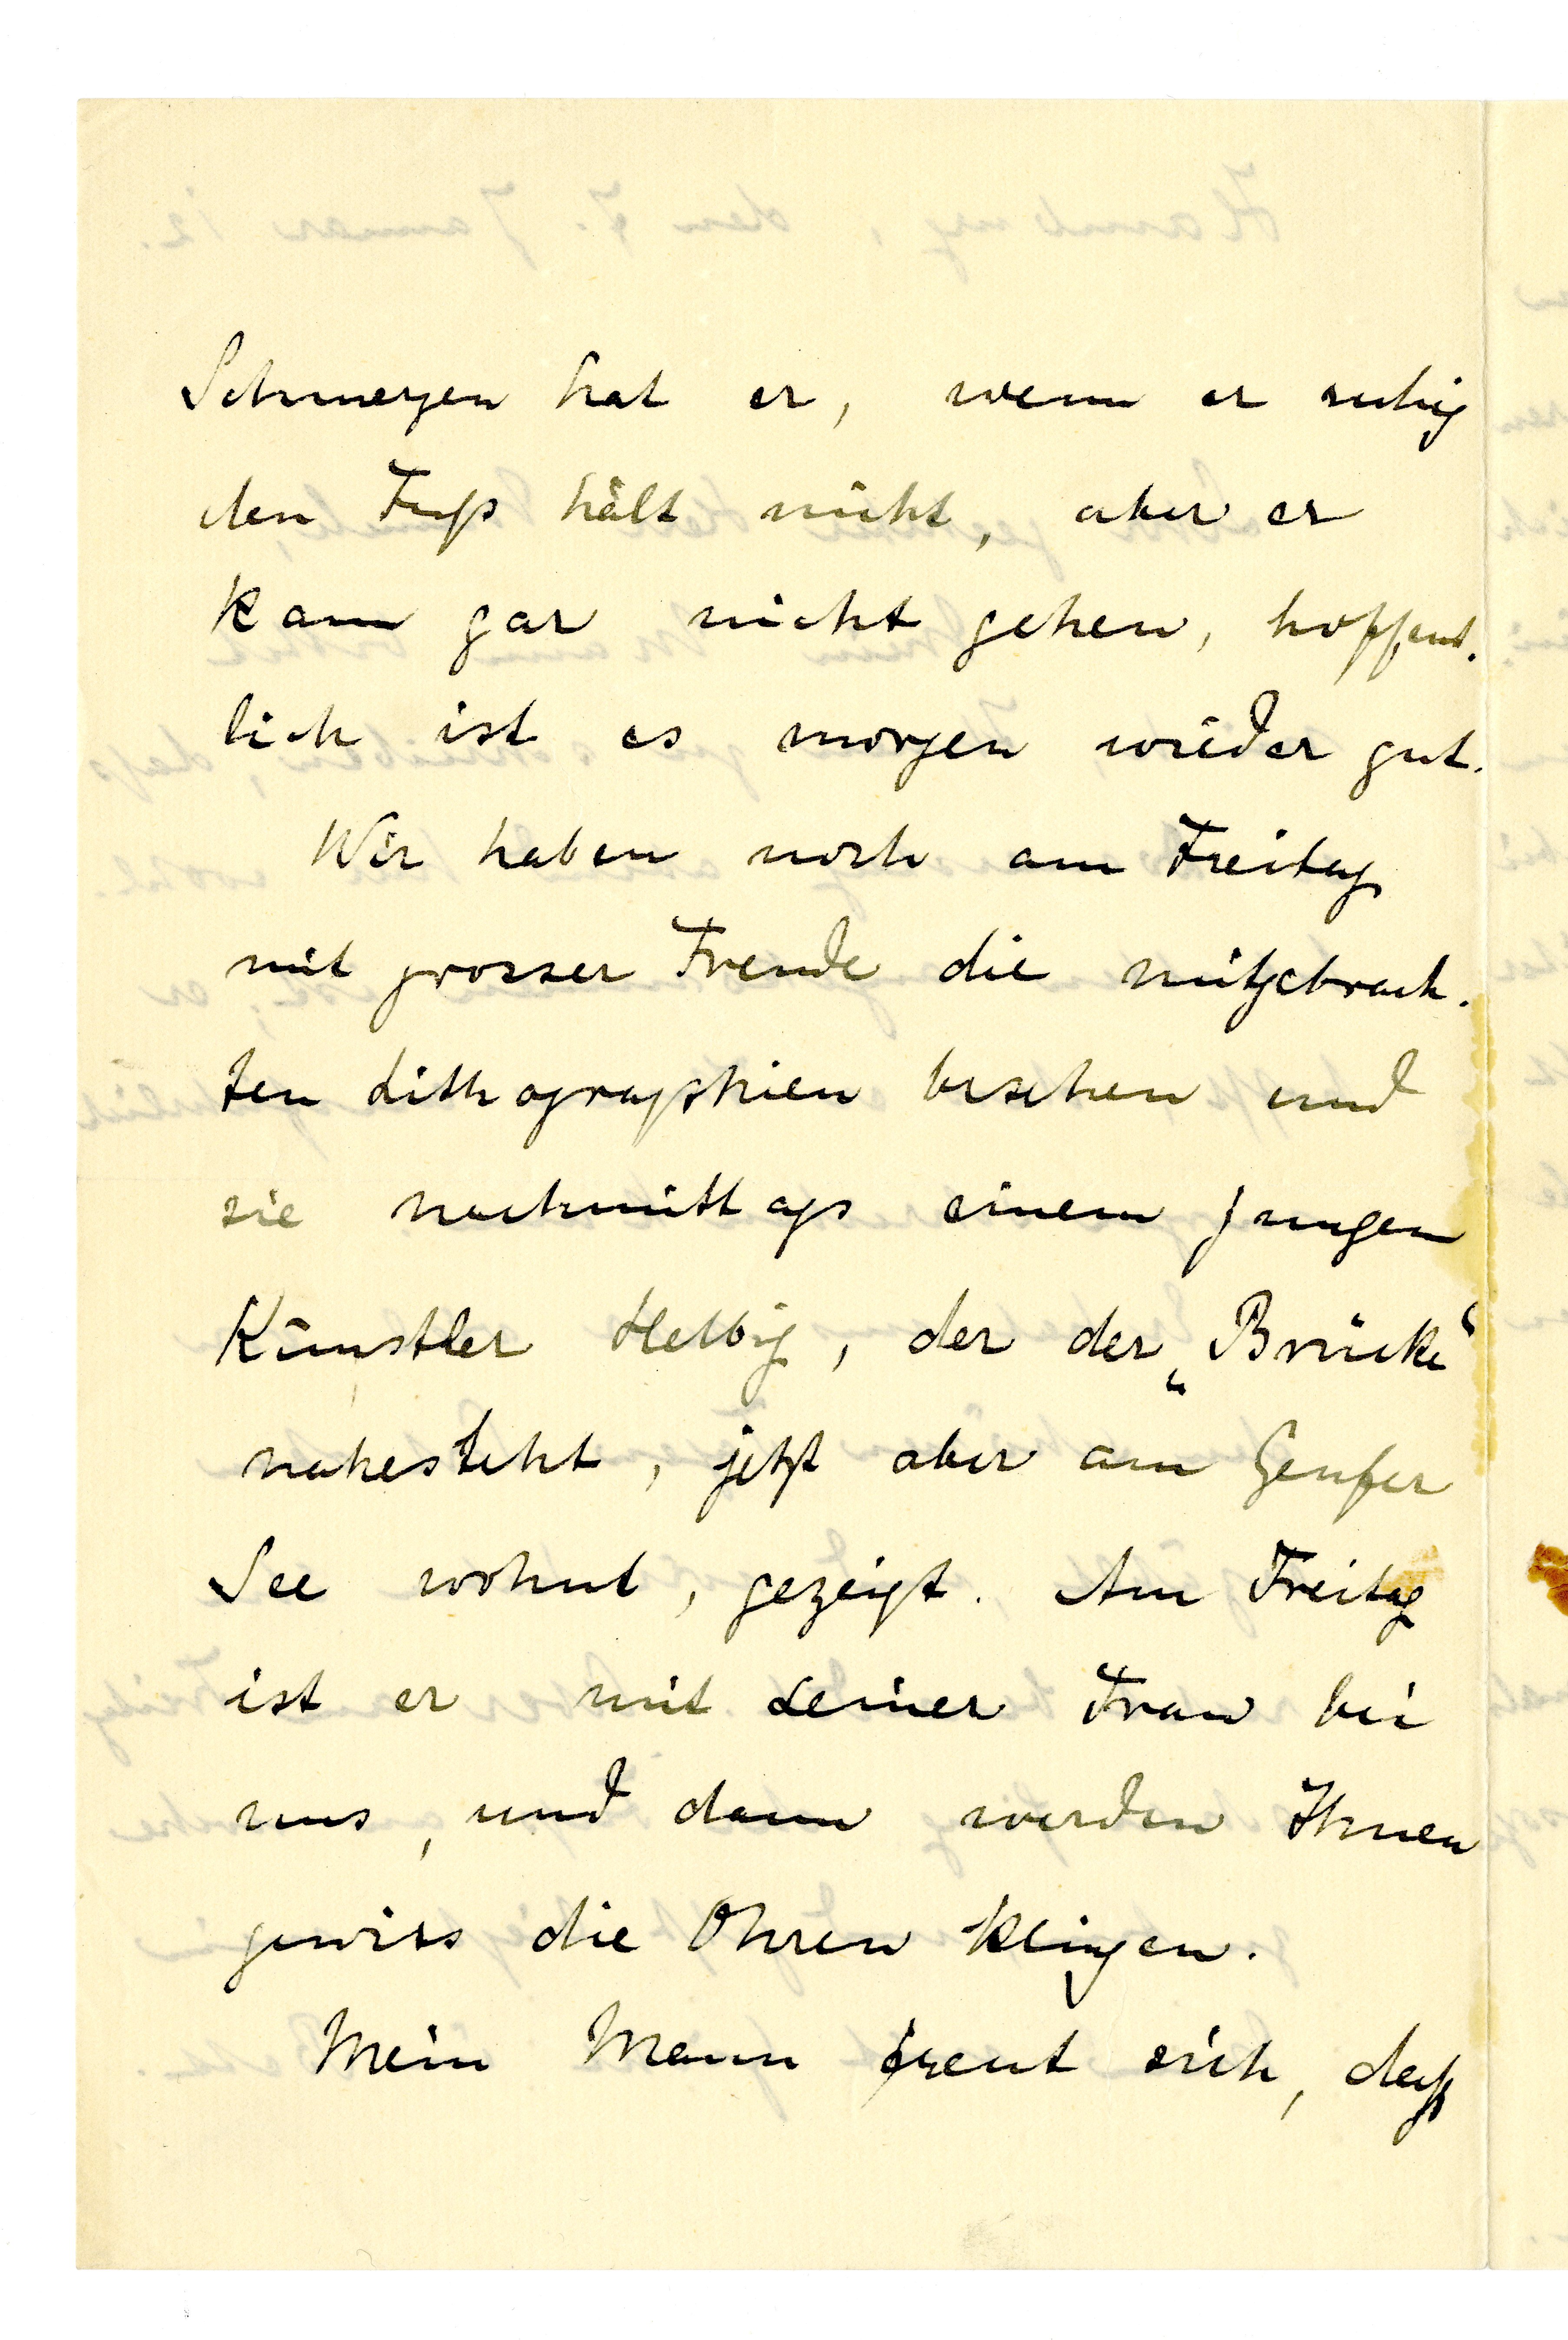 Schmerzen hat er, wenn er ruhig
den Fuß hält nicht, aber er
kann gar nicht gehen, hoffent-
lich ist es morgen wieder gut.
Wir haben noch am Freitag
mit grosser Freude die mitgebrach-
ten Lithographien besehen und
sie nachmittags einem jungen
Künstler Helbig, der der „Brücke“
nahesteht, jetzt aber am Genfer
See wohnt, gezeigt. Am Freitag
ist er mit seiner Frau bei
uns, und dann werden Ihnen
gewiss die Ohren klingen.
Mein Mann freut sich, daß